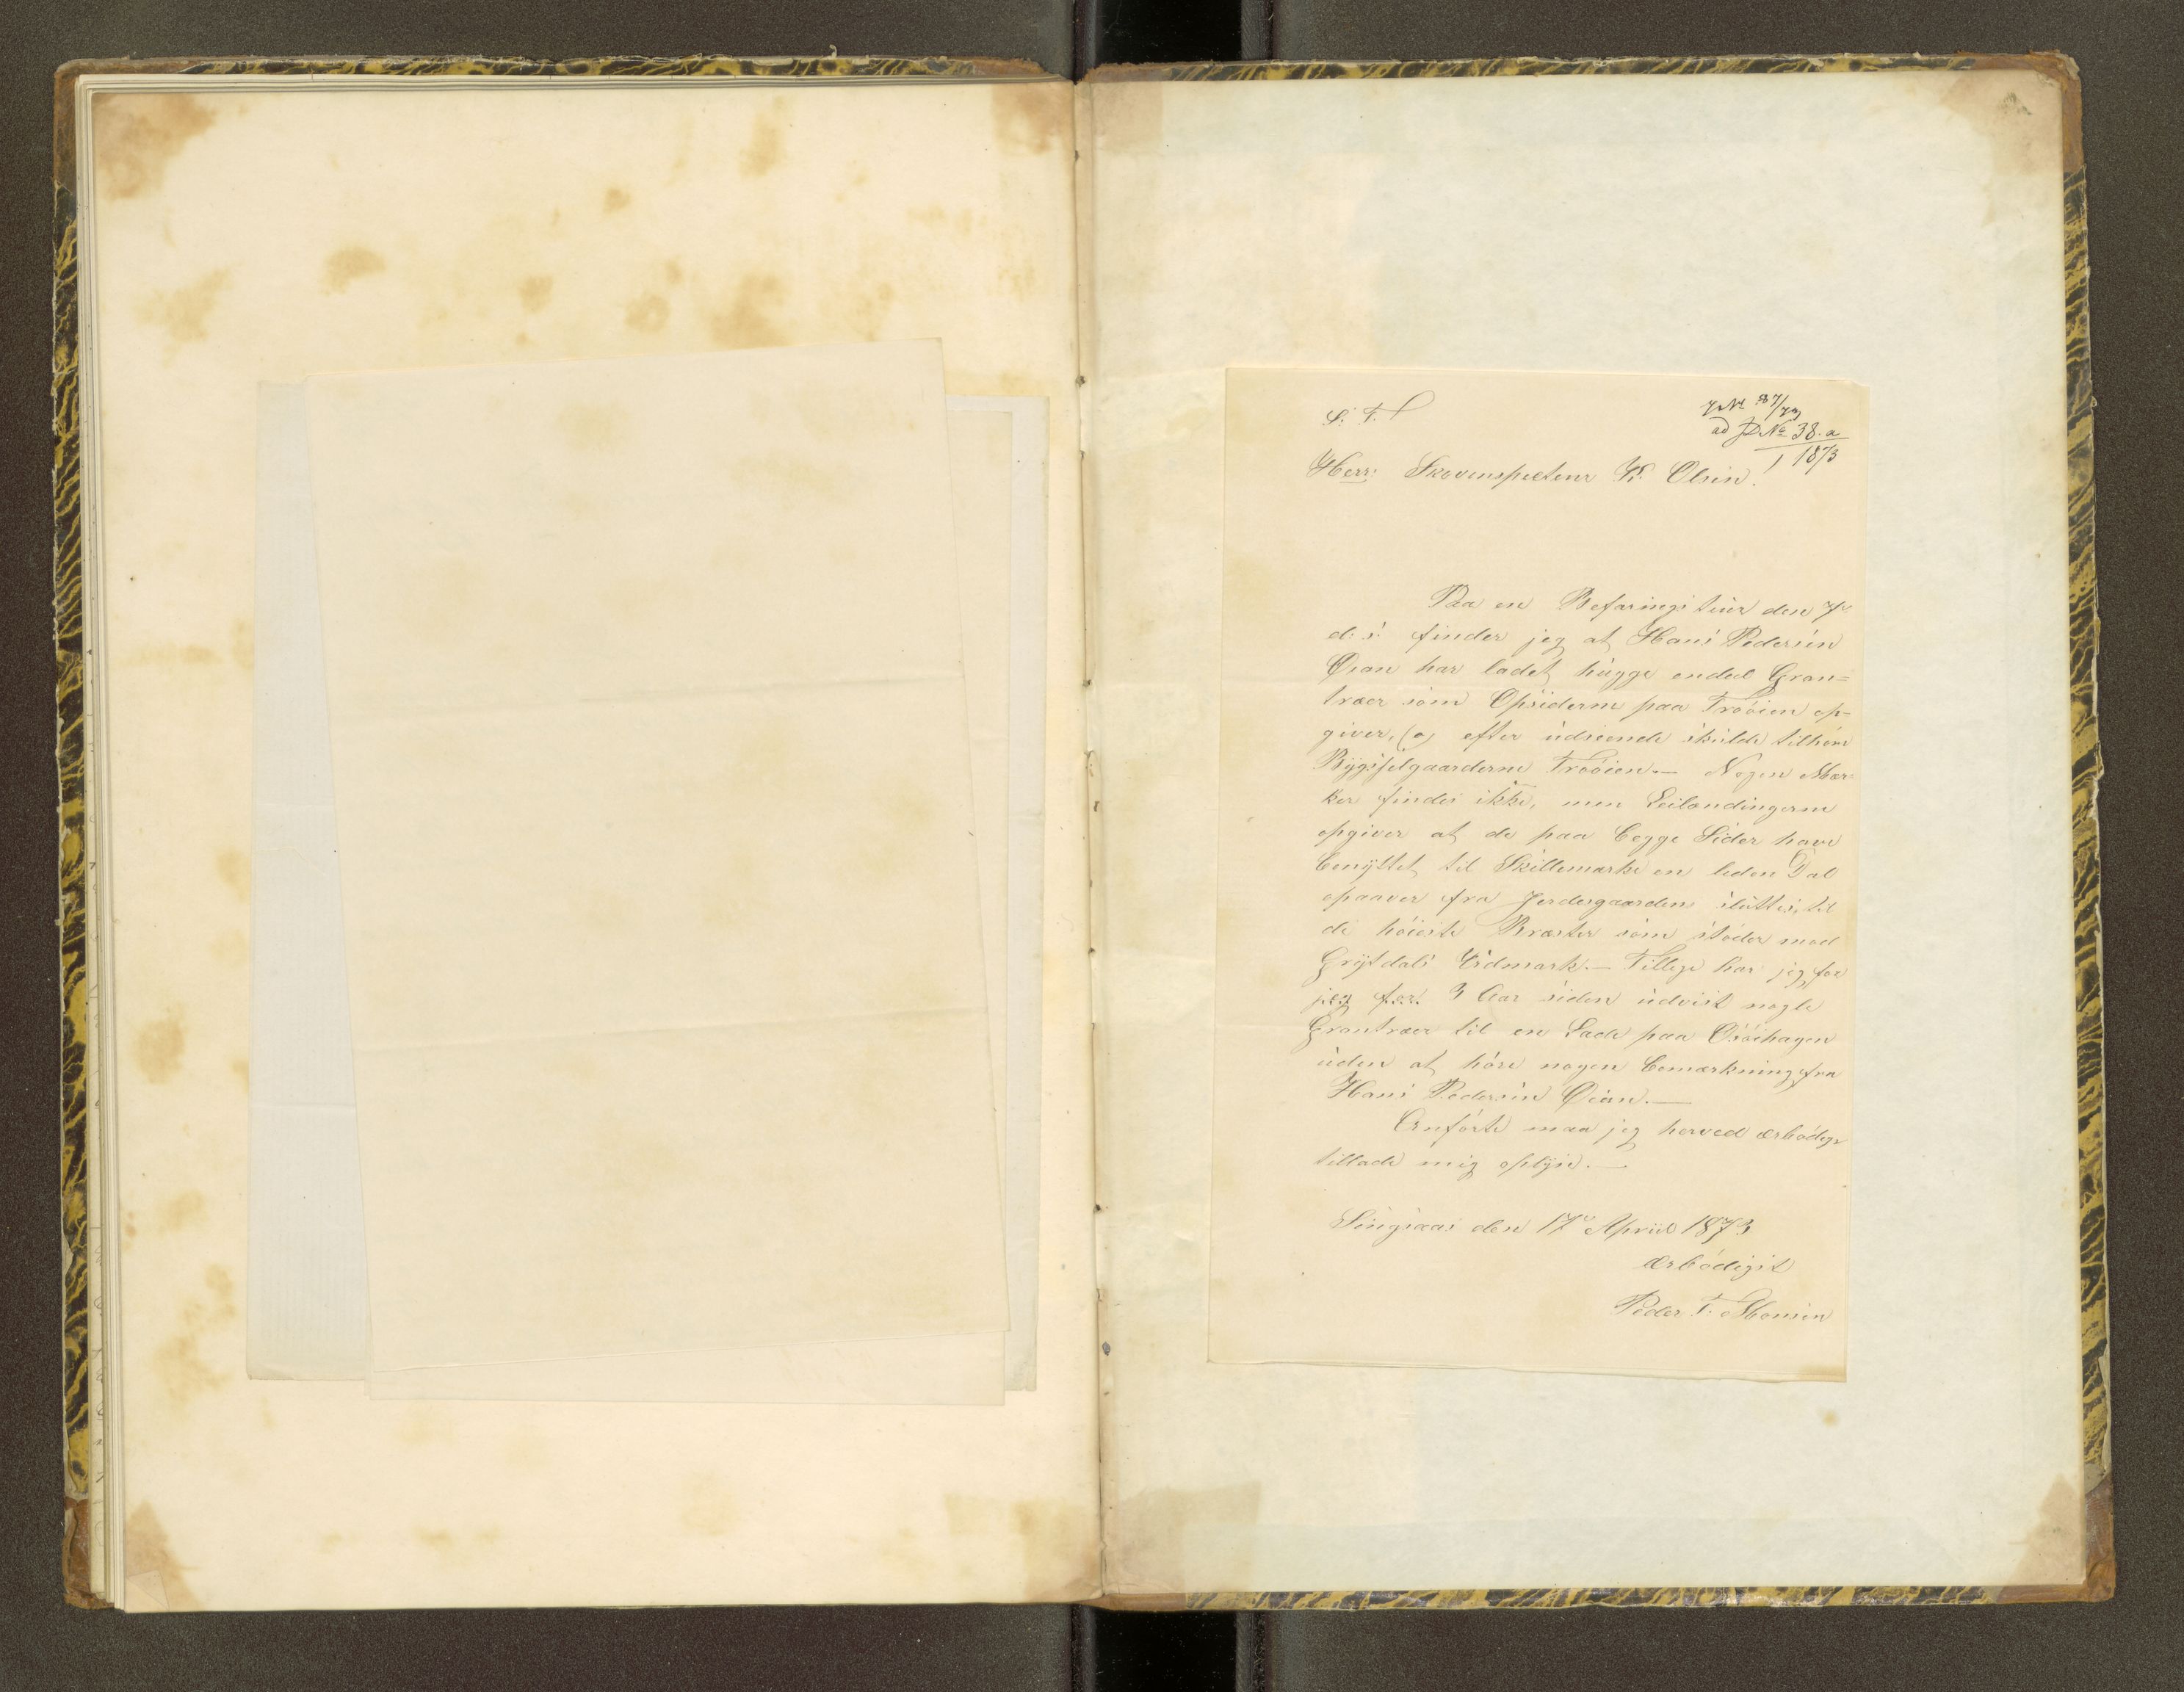 S. T.
J. No 87/73
ad J. No 38. a
1873
Herr: Skovinspecteur K. Olsen!
Paa en Befaringstuur den 7de
d: s: finder jeg at Hans Pedersen
Øian har ladet hugge endeel Gran=
træer som Opsiderne paa Trøoien op=
giver, og efter udseende skulde tilhøre
Bygselgaarderne Trøoien. — Nogen Mær=
ker findes ikke, men Leilændingerne
opgiver at de paa begge Sider have
benyttet til Skillemærke en liden Dal
opaaver fra Jerdesgaarden sluttes, til
de høieste Bræster som støder mod
Grytdals Udmark. — Tillige har jeg for
jeg for 3 Aar siden udvist nogle
Grantræer til en Lade paa Øsøihagen
uden at høre nogen bemærkning fra
Hans Pedersen Øian. —
Anførte maa jeg herved ærbødigst
tillade mig oplyse. —
Singsaas den 17de April 1873
Ærbødigst
Peder T. Monsen